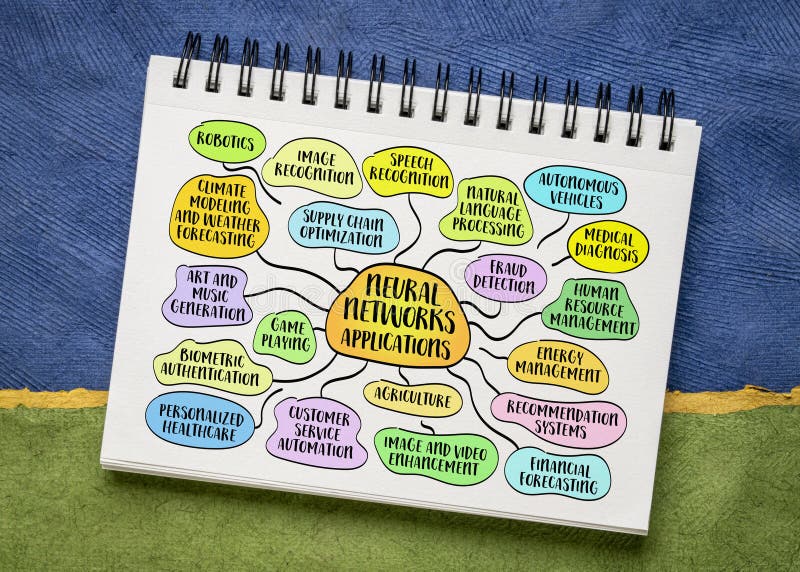 ROBOTICS
IMAGE
RECOGNITION
SPEECH
RECOGNITION
NATURAL
LANGUAGE
PROCESSING
AUTONOMOUS
VEHICLES
CLIMATE
MODELING
AND WEATHER
FORECASTING
SUPPLY CHAIN
OPTIMIZATION
MEDICAL
DIAGNOSIS
FRAUD
DETECTION
ART AND
MUSIC
GENERATION
NEURAL
NETWORKS
APPLICATIONS
HUMAN
RESOURCE
MANAGEMENT
GAME
PLAYING
ENERGY
MANAGEMENT
BIOMETRIC
AUTHENTICATION
AGRICULTURE
RECOMMENDATION
SYSTEMS
PERSONALIZED
HEALTHCARE
CUSTOMER
SERVICE
AUTOMATION
IMAGE AND VIDEO
ENHANCEMENT
FINANCIAL
FORECASTING